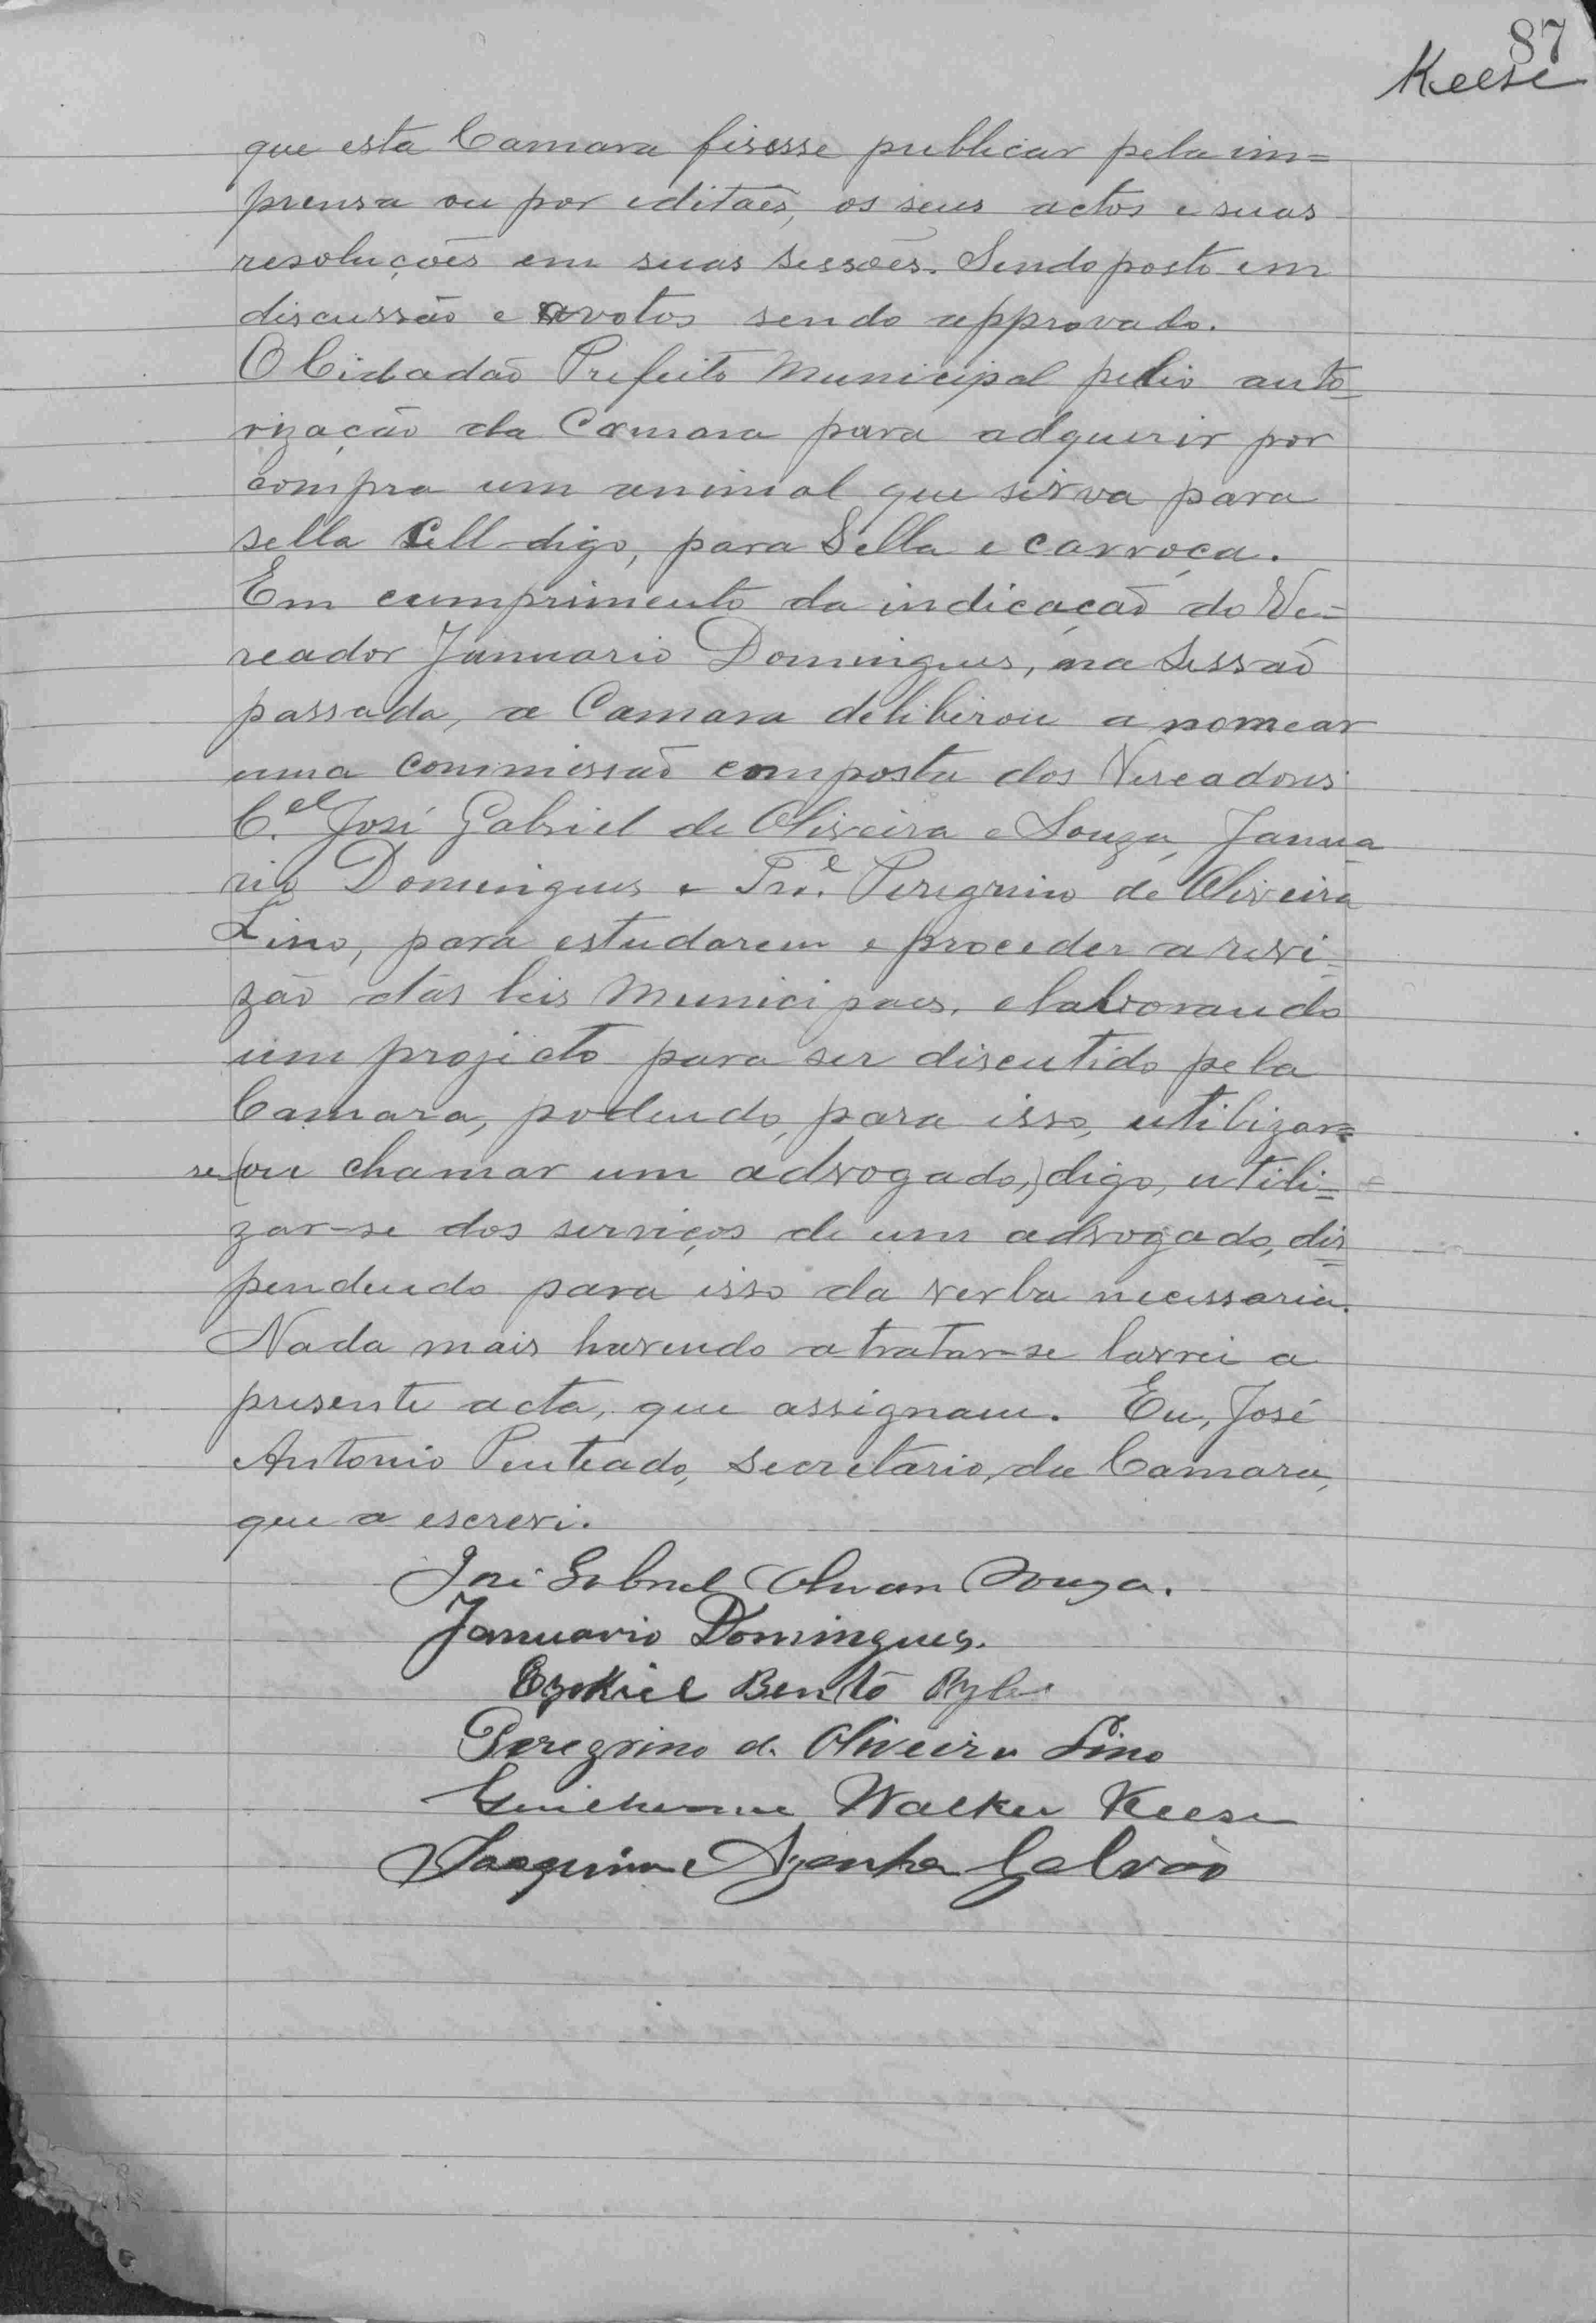 87
Keese
que esta Camara fisesse publicar pela im=
prensa ou por editaes, os seus actos e suas
resoluções em suas sessões. Sendo posto em
discussão e a votos sendo approvado.
O Cidadão Prefeito Municipal pedio auto=
rização da Camara para adquerir por
compra um animal que sirva para
sella sell-digo, para Sella e carroça.
Em cumprimento da indicação do Ve=
reador Januario Domingues, na Sessão
passada, a Camara deliberou a nomear
uma commissão composta dos Vereadores
C.el José Gabriel de Oliveira e Souza, Janua
rio Domingues e Peregrino de Oliveira
Lino, para estudarem e proceder a revi=
zão das leis Municipaes, elaborando
um projecto para ser discutido pela
Camara, podendo, para isso, utilizar=
se (ou chamar um advogado,) digo, utili=
zar-se dos serviços de um advogado, dis=
pendendo para isso da verba necessaria.
Nada mais havendo a tratar-se lavrei a
presente acta, que assignam. Eu, José
Antonio Penteado, secretario, da Camara,
que a escrevi.
José Gabriel Souza.
Januario Domingues.
Ezekiel Bento
Peregrino de Oliveira Lino
Guilherme Walker Keese
Joaquim Azenha Galvão